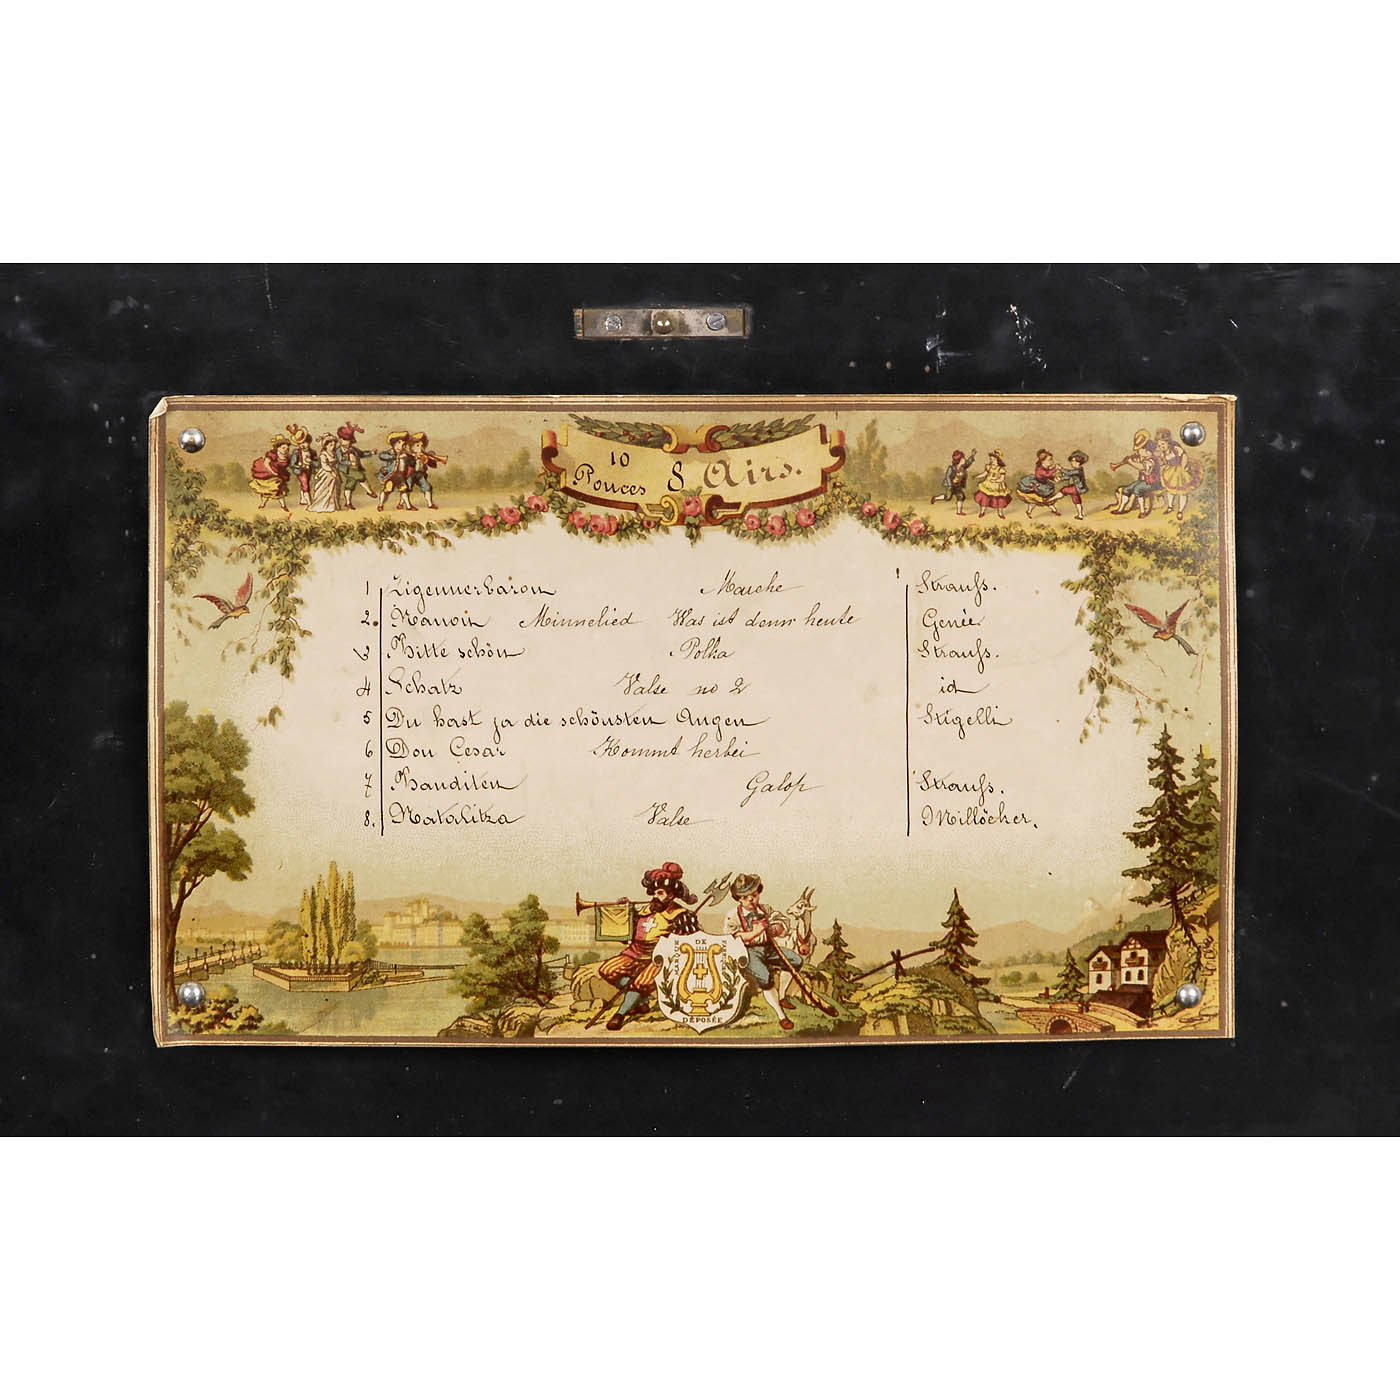 10
Pouces 8 Airs.
1 Zigeunerbaron Marche Strauss.
2. Nanon Minnelied Was ist denn heute Genée
3 Bitte schön Polka Strauss.
4 Schatz Valse no 2 id
5 Du hast ja die schönsten Augen Stigelli
6 Don Cesar Kommt herbei
7 Banditen Galop Strauss.
8. Natalitza Valse Millöcher.
MARQUE DE FABRIQUE
DÉPOSÉE